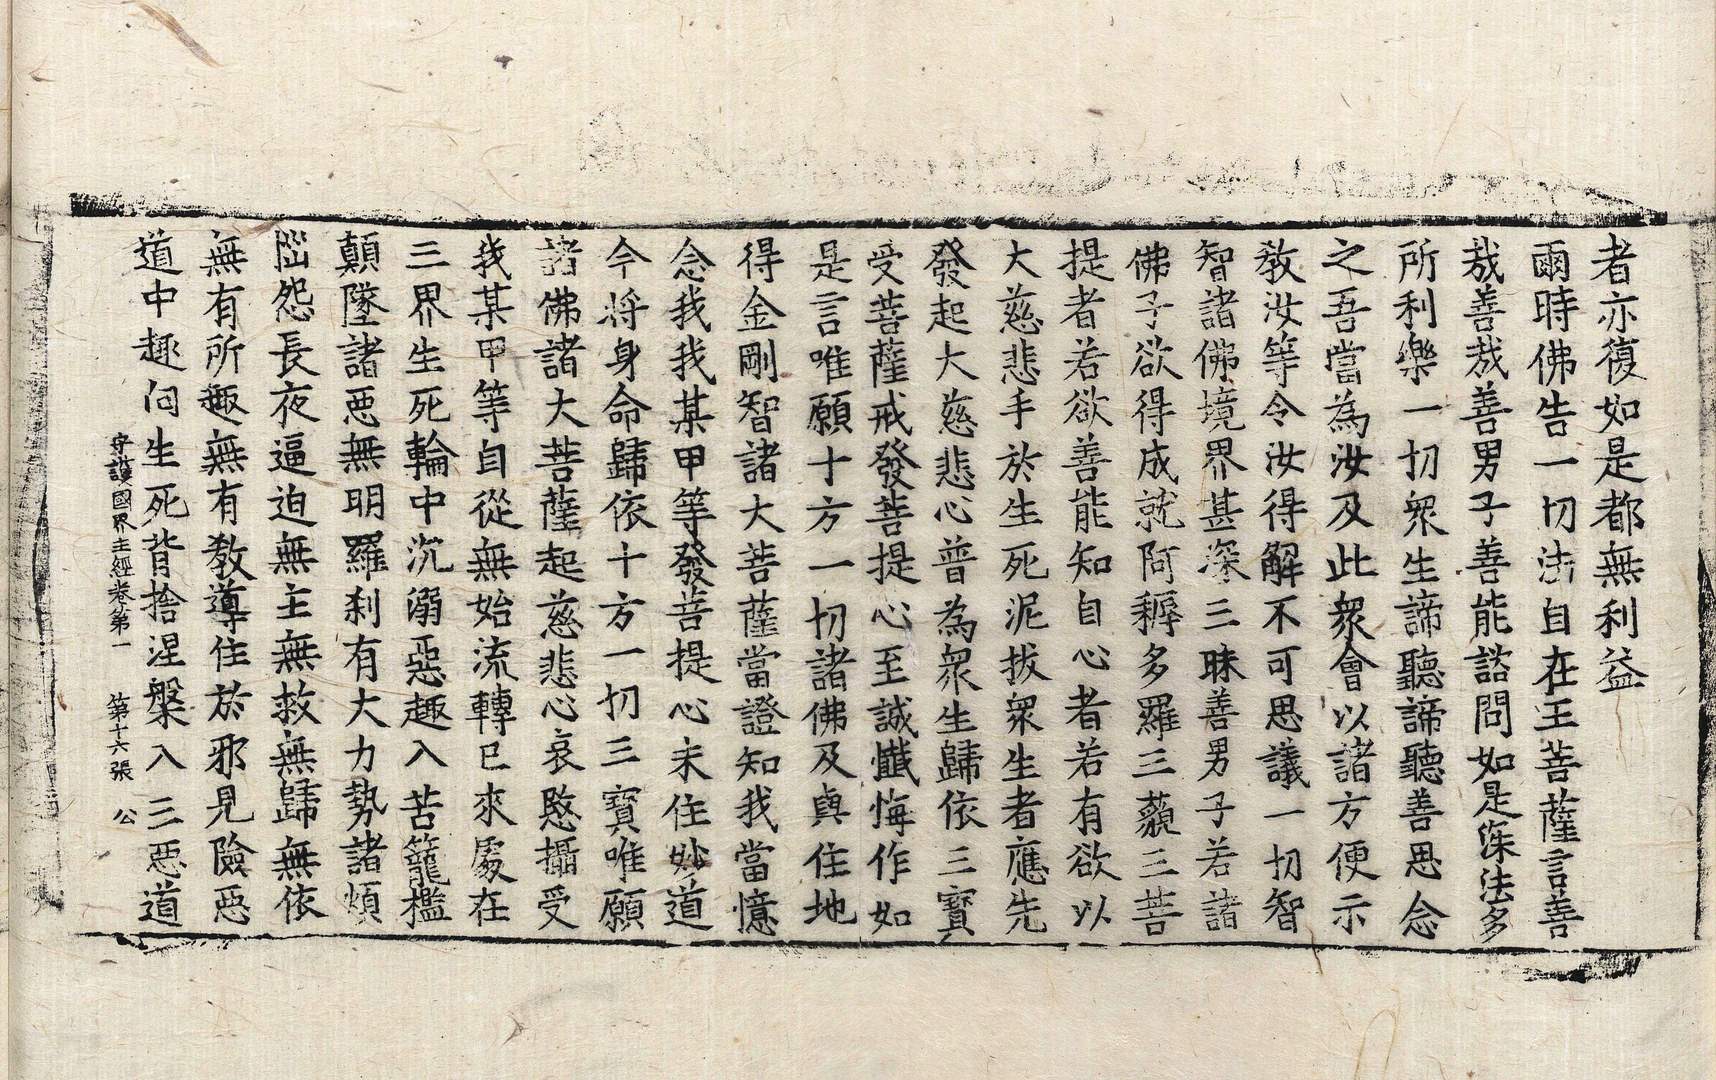 者亦復如是都無利益
爾時佛告一切法自在王菩薩言善
哉善哉善男子善能諮問如是深法多
所利樂一切衆生諦聽諦聽善思念
之吾當為汝及此衆會以諸方便示
教汝等令汝得解不可思議一切智
智諸佛境界甚深三昧善男子若諸
佛子欲得成就阿耨多羅三藐三菩
提者若欲善能知自心者若有欲以
大慈悲手於生死泥拔衆生者應先
發起大慈悲心普為衆生歸依三寶
受菩薩戒發菩提心至誠懺悔作如
是言唯願十方一切諸佛及與住地
得金剛智諸大菩薩當證知我當憶
念我我某甲等發菩提心未住妙道
今將身命歸依十方一切三寶唯願
諸佛諸大菩薩起慈悲心哀愍攝受
我某甲等自從無始流轉已來處在
三界生死輪中沉溺惡趣入苦籠檻
顛墜諸惡無明羅刹有大力勢諸煩
惱怨長夜逼迫無主無救無歸無依
無有所趣無有教導住於邪見險惡
道中趣向生死背捨涅槃入三惡道
守護國界主經卷第一 第十六張 公